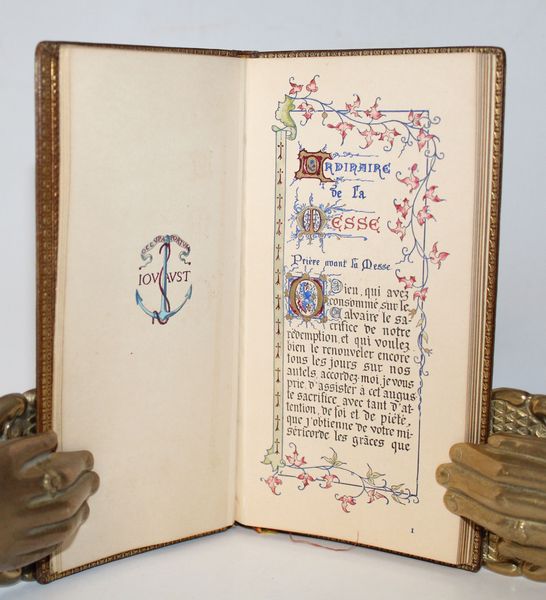 OCCUPA PORTUM
IOVAVST
ORDINAIRE
de la
MESSE
Prière avant la Messe
O Dieu, qui avez
consommé sur le
Calvaire le sa-
crifice de notre
rédemption, et qui voulez
bien le renouveler encore
tous les jours sur nos
autels, accordez-moi, je vous
prie d'assister à cet augus-
te sacrifice avec tant d'at-
tention, de foi et de piété,
que j'obtienne de votre mi-
séricorde les grâces que
1